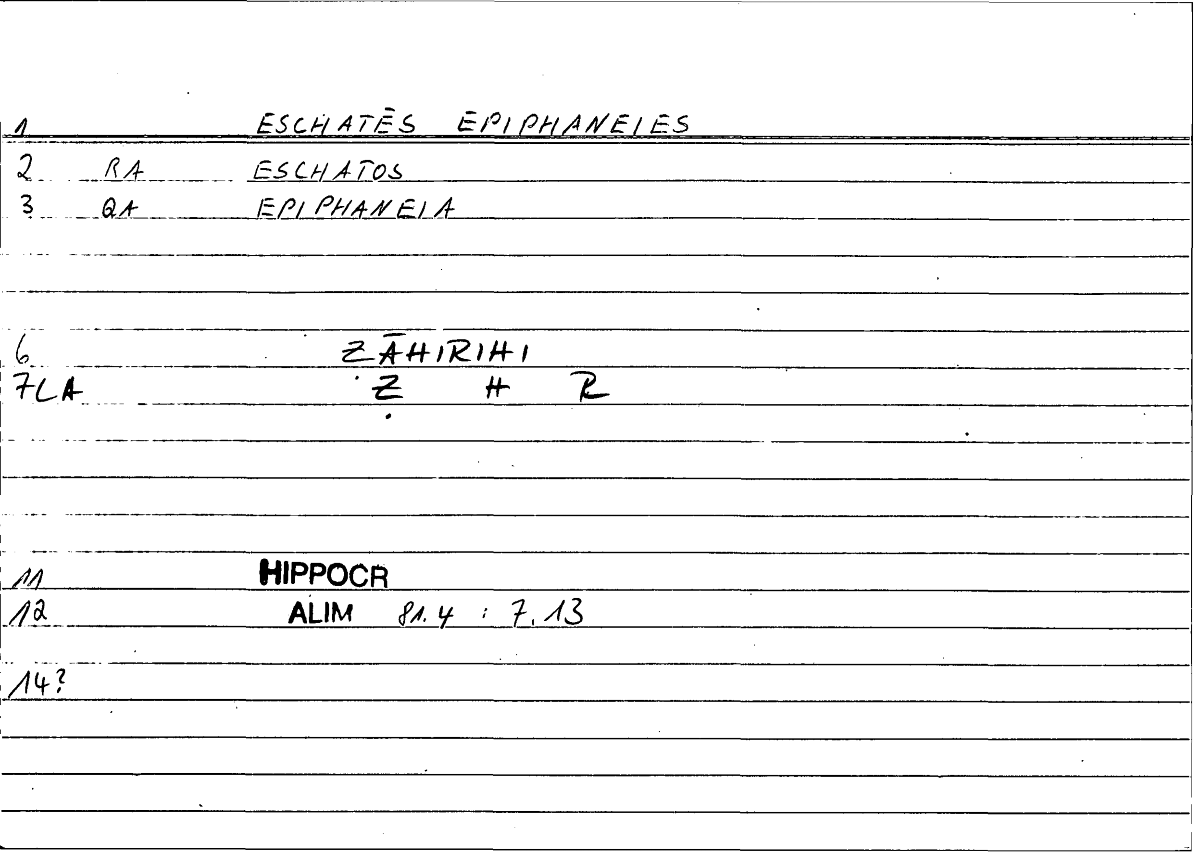 1 ESCHATĒS EPIPHANEIES
2 RA ESCHATOS
3 QA EPIPHANEIA
6 ZĀHIRIHI
7LA Ẓ H R
11 HIPPOCR
12 ALIM 81.4 : 7.13
14?